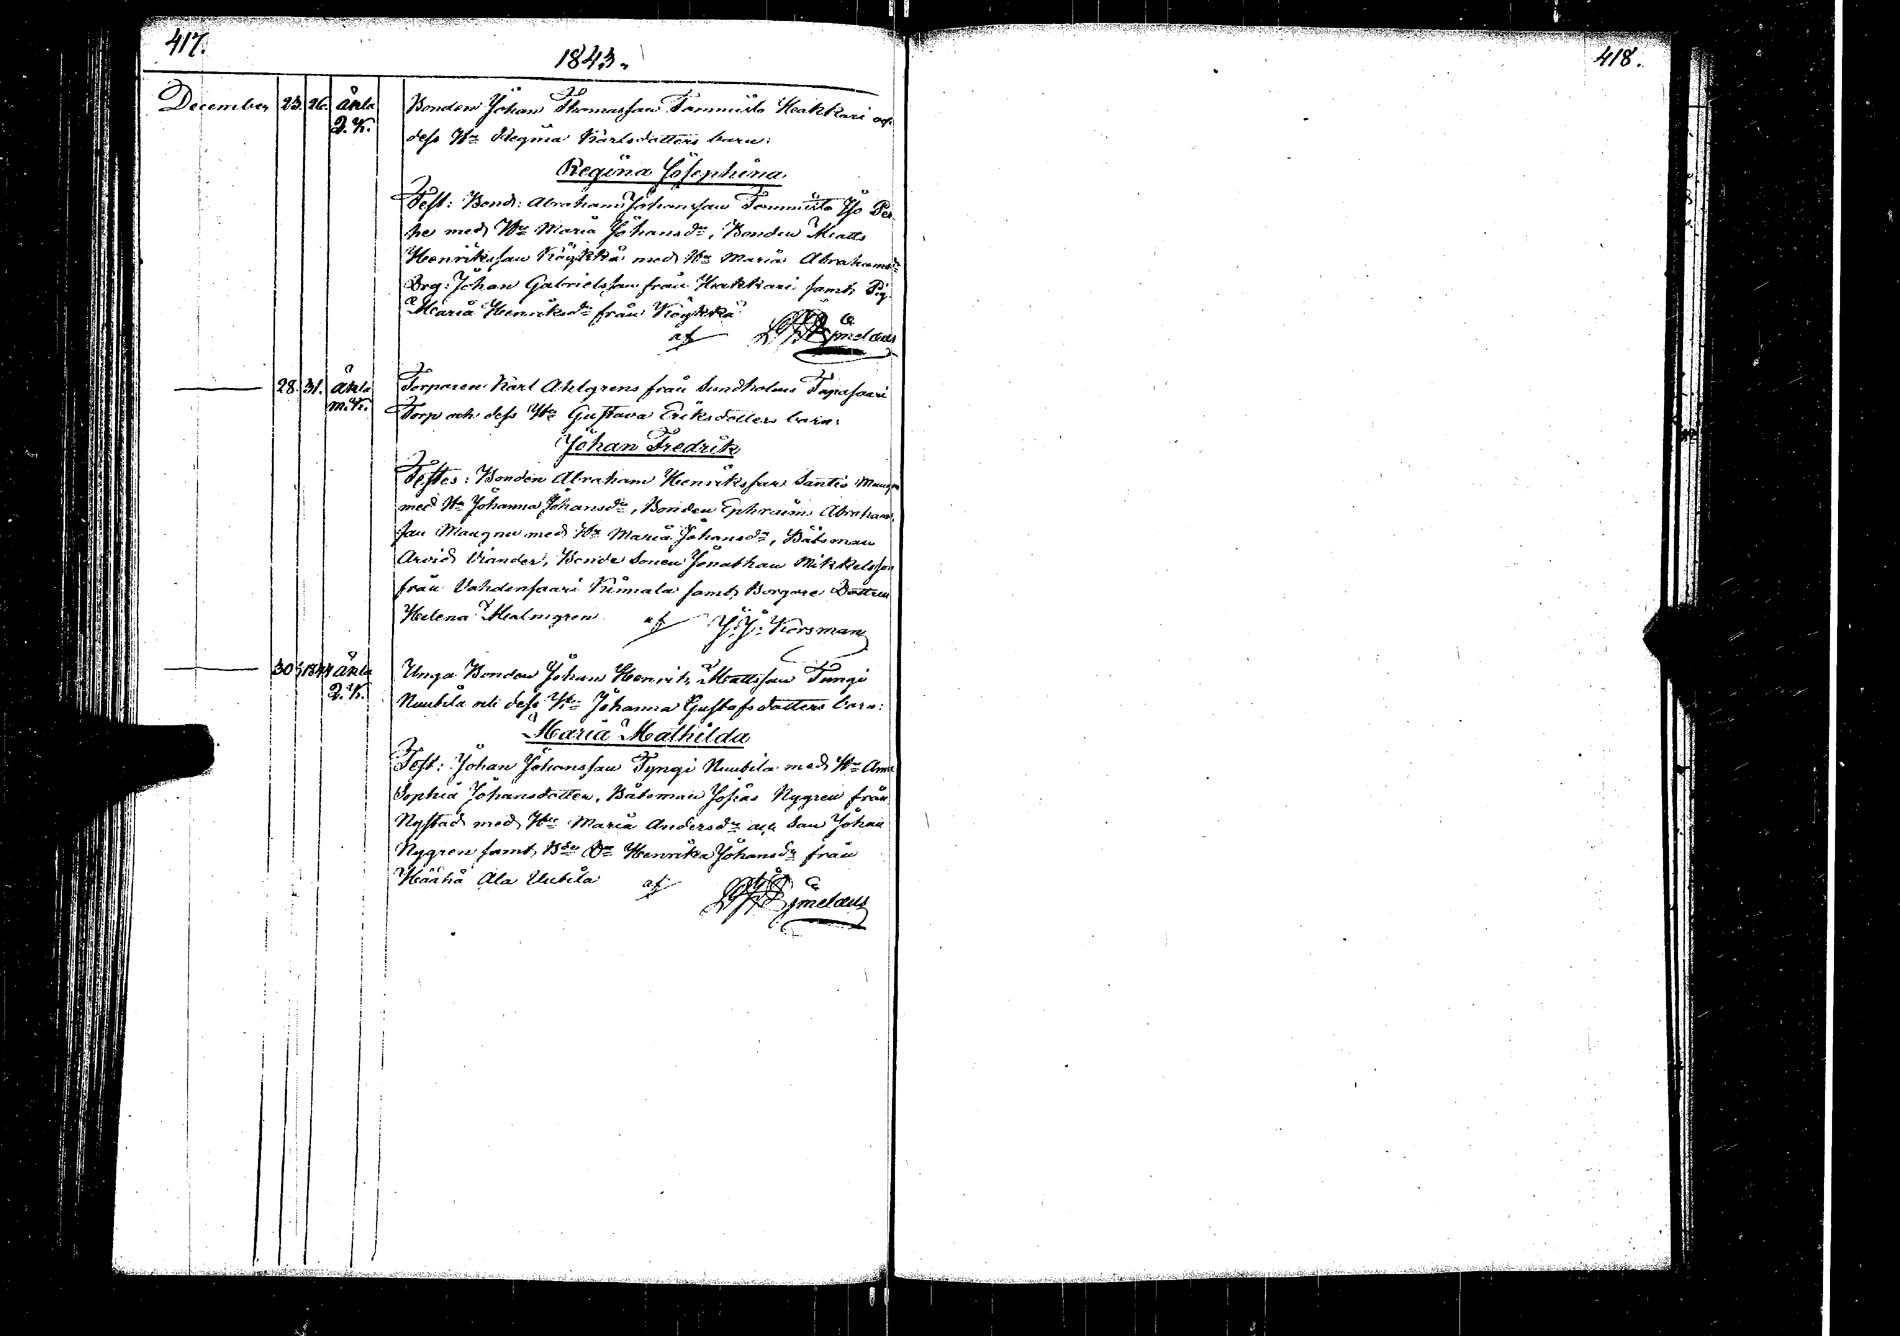 417.
1843.
418.
December 23. 26. äkta Bonden Johan Thomasson Tommila Hakkari och
Q. K. dess H:u Regina Karlsdotters barn:
Regina Josephina
Test: Bond: Abraham Johansson Tommila Iso Per
he med H:u Maria Johansd:r, Bonden Matts
Henriksson Köykkä med H:u Maria Abrahamsd:r
Drg. Johan Gabrielsson från Hakkari samt Pig.
Maria Henriksd:r från Köykkä
af
28. 31. äkta Torparen Karl Ahlgrens från Sundholms Tupasaari
m. K. Torp och dess H:u Gustava Eriksdotters barn:
Johan Fredrik
Testes: Bonden Abraham Henriksson Santio
med H:u Johanna Johansd:r, Bonden Ephraim Abraham
son Maugnu med H:u Maria Johansd:r, Båtsman
Arvid Viander, Bonde Sonen Jonathan Mikkelsson
från Vohdensaari Kinnala samt Borgare Dottren
Helena Malmgren af J. J. Korsman
30 1844 äkta Unga Bonden Johan Henrik Mattsson Tungi
Q. K. Nuubila och dess H:u Johanna Gustafsdotters barn:
Maria Mathilda
Test: Johan Johansson Tyngi Nuubila med H:u Anna
Sophia Johansdotter, Båtsman Josias Nygren från
Nystad med H:u Maria Andersd:r och Son Johan
Nygren samt B:de D:r Henrika Johansd:r från
Häähä Ala Uubila af